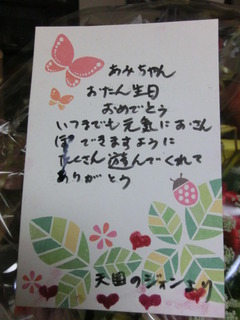 あみちゃん
おたん生日
おめでとう
いつまでも元気におさん
ぽできますように
たくさん遊んでくれて
ありがとう
天国のジョンより